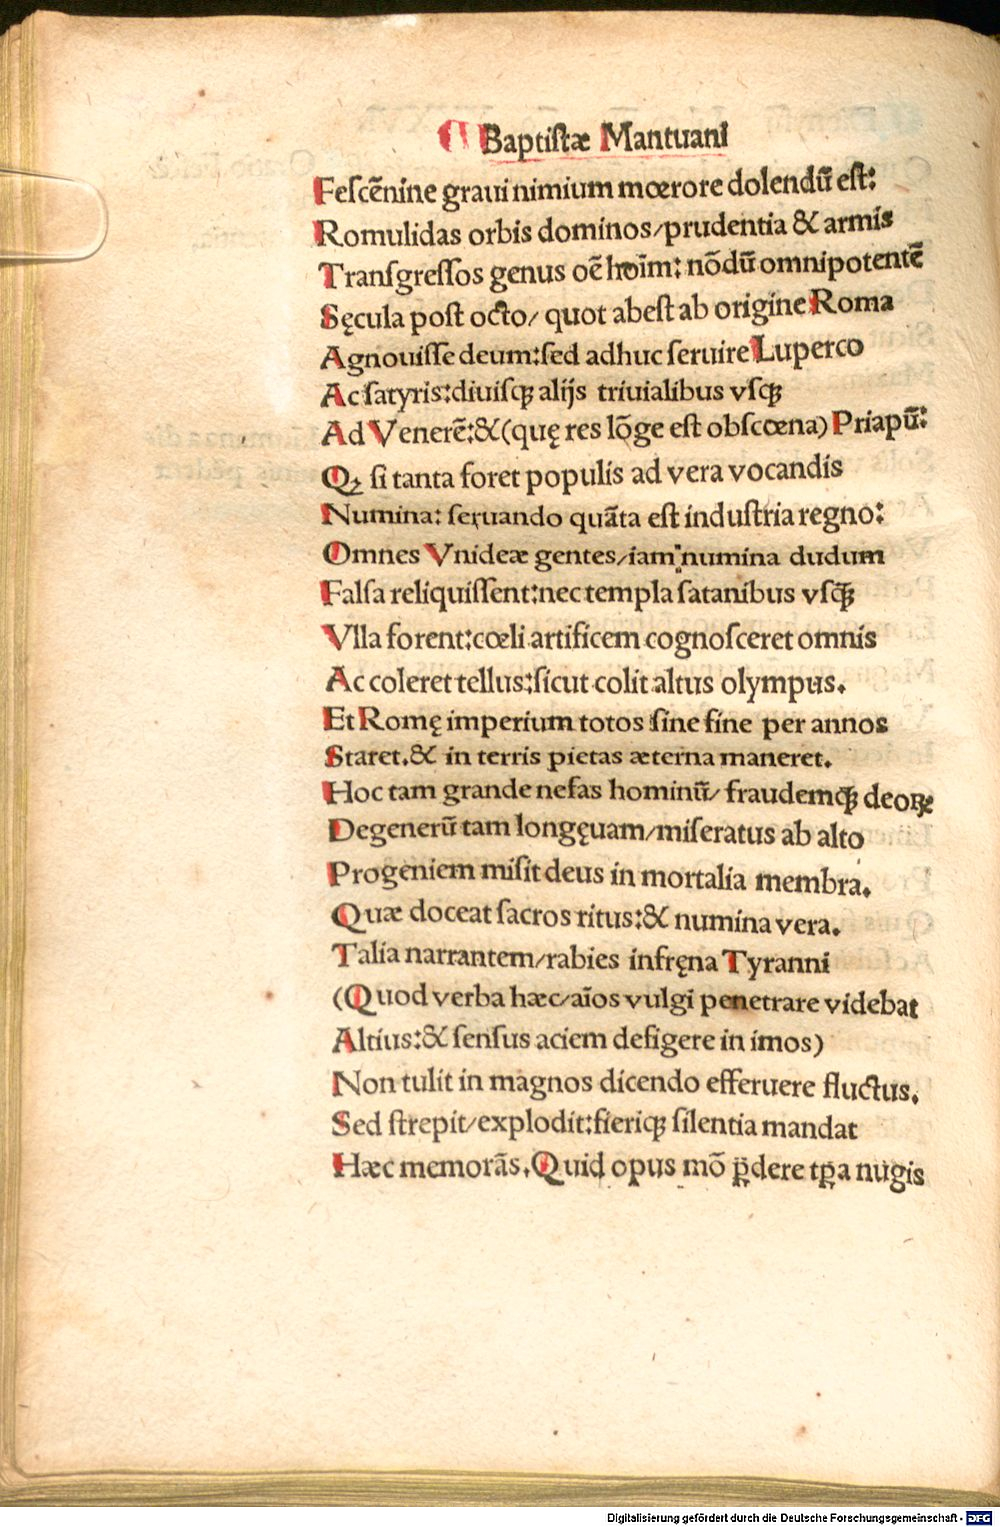 Baptistæ Mantuani
Feſcēnine graui nimium mœrore dolendū eſt:
Romulidas orbis dominos/prudentia & armis
Tranſgreſſos genus oē hoīm: nōdū omnipotentē
Sęcula poſt octo/ quot abeſt ab origine Roma
Agnouiſſe deum:ſed adhuc ſeruire Luperco
Ac ſatyris:diuiſqꝫ alijs triuialibus vſqꝫ
Ad Venerē:&(quę res lōge eſt obſcœna) Priapū:
Qꝫ ſi tanta foret populis ad vera vocandis
Numina: ſeruando quāta eſt induſtria regno:
Omnes Vnideæ gentes/iam numina dudum
Falſa reliquiſſent:nec templa ſatanibus vſqꝫ
Vlla forent:cœli artificem cognoſceret omnis
Ac coleret tellus:ſicut colit altus olympus.
Et Romę imperium totos ſine fine per annos
Staret.& in terris pietas æterna maneret.
Hoc tam grande nefas hominū/ fraudemqꝫ deoꝝ
Degenerū tam longęuam/miſeratus ab alto
Progeniem miſit deus in mortalia membra.
Quæ doceat ſacros ritus:& numina vera.
Talia narrantem/rabies infręna Tyranni
(Quod verba hæc/aīos vulgi penetrare videbat
Altius:& ſenſus aciem defigere in imos)
Non tulit in magnos dicendo efferuere fluctus.
Sed ſtrepit/explodit:fieriqꝫ ſilentia mandat
Hæc memorās.Quid opus mō ꝑdere tꝑa nugis
Digitalisierung gefördert durch die Deutsche Forschungsgemeinschaft - DFG